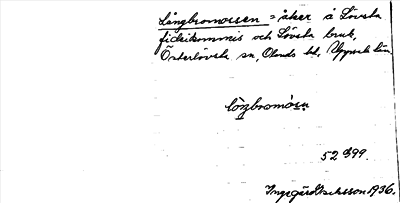 Långbromossen = åker å Lövsta
fideikommis och Lövsta bruk,
Österlövsta sn, Olands hd, Uppsala län
lòŋbromósn
52 399.
Ingegärd Isaksson 1936.